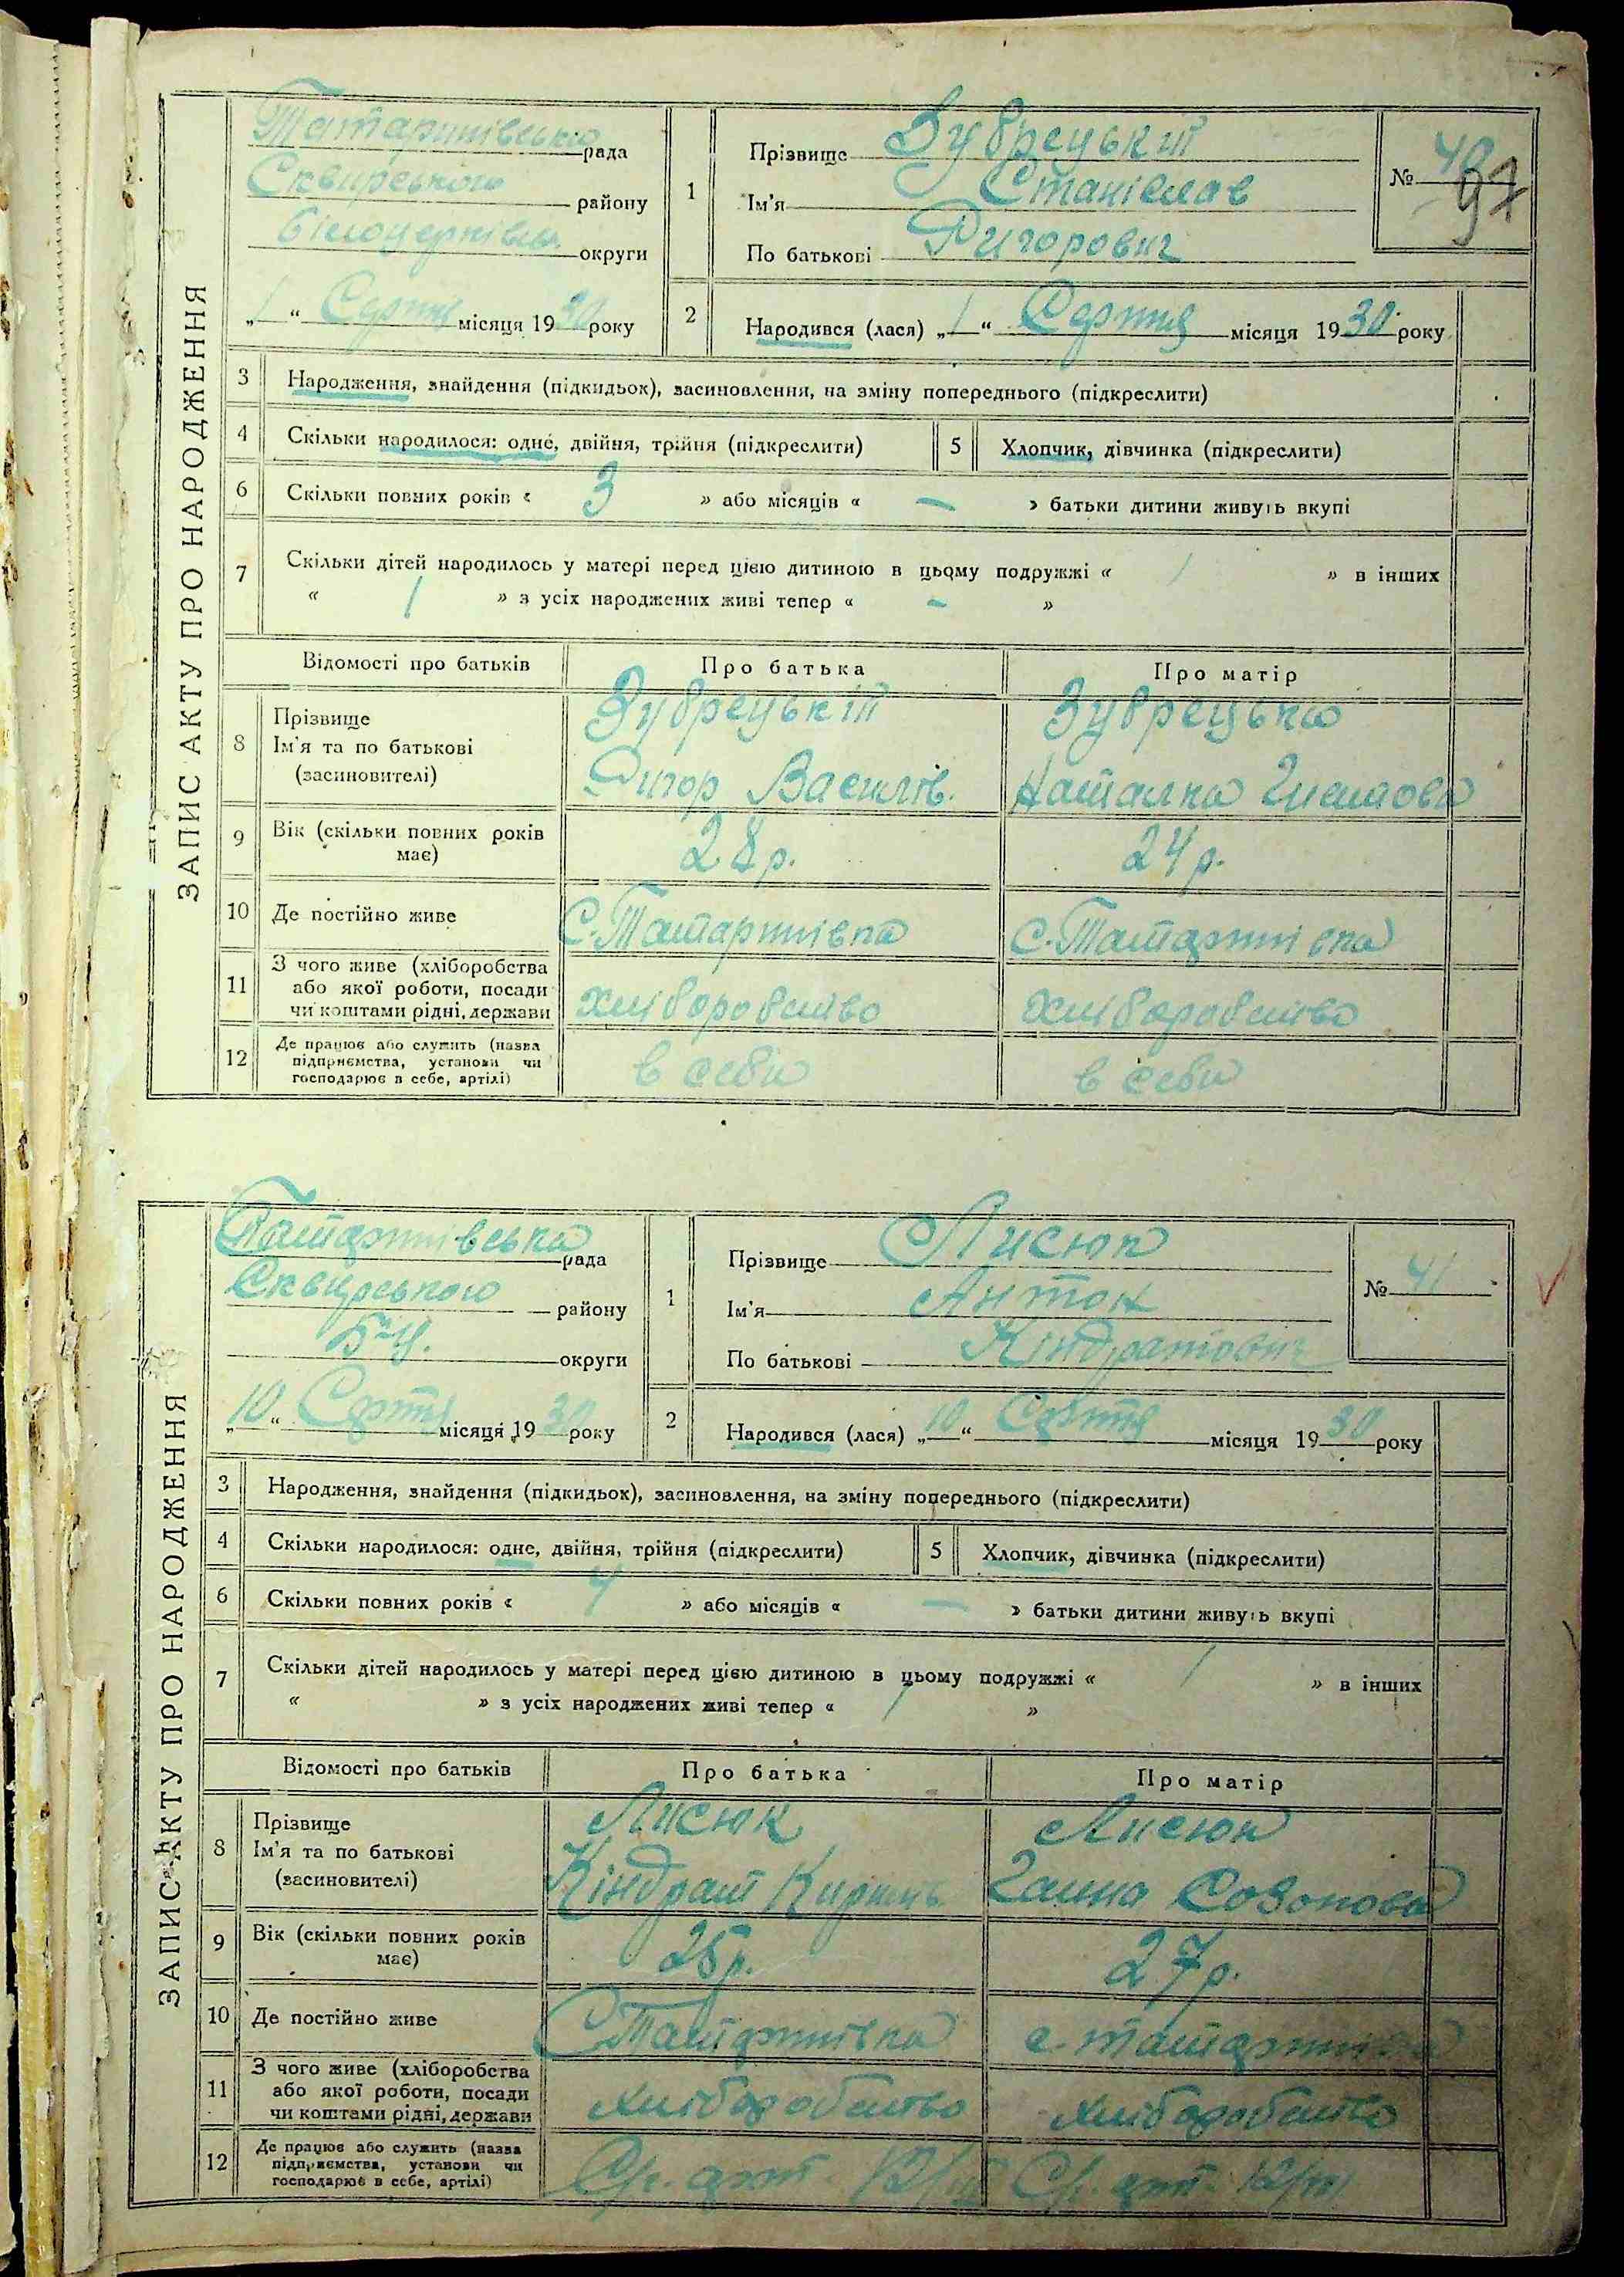 ЗАПИС АКТУ ПРО НАРОДЖЕННЯ
Татаринівська рада
Сквирського району
округи
„1“ Серпня місяця 1930 року
1
Прізвище Зубрецький
Ім'я Станіслав
По батькові Ригорович
№ 40
97
2
Народився (лася) „1“ Серпня місяця 1930 року
3 Народження, знайдення (підкидьок), засиновлення, на зміну попереднього (підкреслити)
4 Скільки народилося: одне, двійня, трійня (підкреслити) 5 Хлопчик, дівчинка (підкреслити)
6 Скільки повних років « 3 » або місяців « — » батьки дитини живуть вкупі
7 Скільки дітей народилось у матері перед цією дитиною в цьому подружжі « 1 » в інших
« 1 » з усіх народжених живі тепер « — »
Відомості про батьків Про батька Про матір
8 Прізвище Зубрецький Зубрецька
Ім'я та по батькові Ригор Наталка
(засиновителі)
9 Вік (скільки повних років 28 р. 24 р.
має)
10 Де постійно живе С. Татаринівка С. Татаринівка
11 З чого живе (хліборобства
або якої роботи, посади хліборобство хліборобство
чи коштами рідні, держави
12 Де працює або служить (назва
підприємства, установи чи в себи в себи
господарює в себе, артілі)
ЗАПИС АКТУ ПРО НАРОДЖЕННЯ
Татаринівська рада
Сквирського району
Б-Ц. округи
„10“ Серпня місяця 1930 року
1
Прізвище Лисюк
Ім'я Антон
По батькові Кіндратович
№ 41
2
Народився (лася) „10“ Серпня місяця 1930 року
3 Народження, знайдення (підкидьок), засиновлення, на зміну попереднього (підкреслити)
4 Скільки народилося: одне, двійня, трійня (підкреслити) 5 Хлопчик, дівчинка (підкреслити)
6 Скільки повних років « 4 » або місяців « — » батьки дитини живуть вкупі
7 Скільки дітей народилось у матері перед цією дитиною в цьому подружжі « 1 » в інших
« » з усіх народжених живі тепер « 1 »
Відомості про батьків Про батька Про матір
8 Прізвище Лисюк Лисюк
Ім'я та по батькові Кіндрат Ганна Созонова
(засиновителі)
9 Вік (скільки повних років 25 р. 27 р.
має)
10 Де постійно живе С. Татаринівка с. Татаринівка
11 З чого живе (хліборобства
або якої роботи, посади хліборобство хліборобство
чи коштами рідні, держави
12 Де працює або служить (назва
підприємства, установи чи
господарює в себе, артілі)